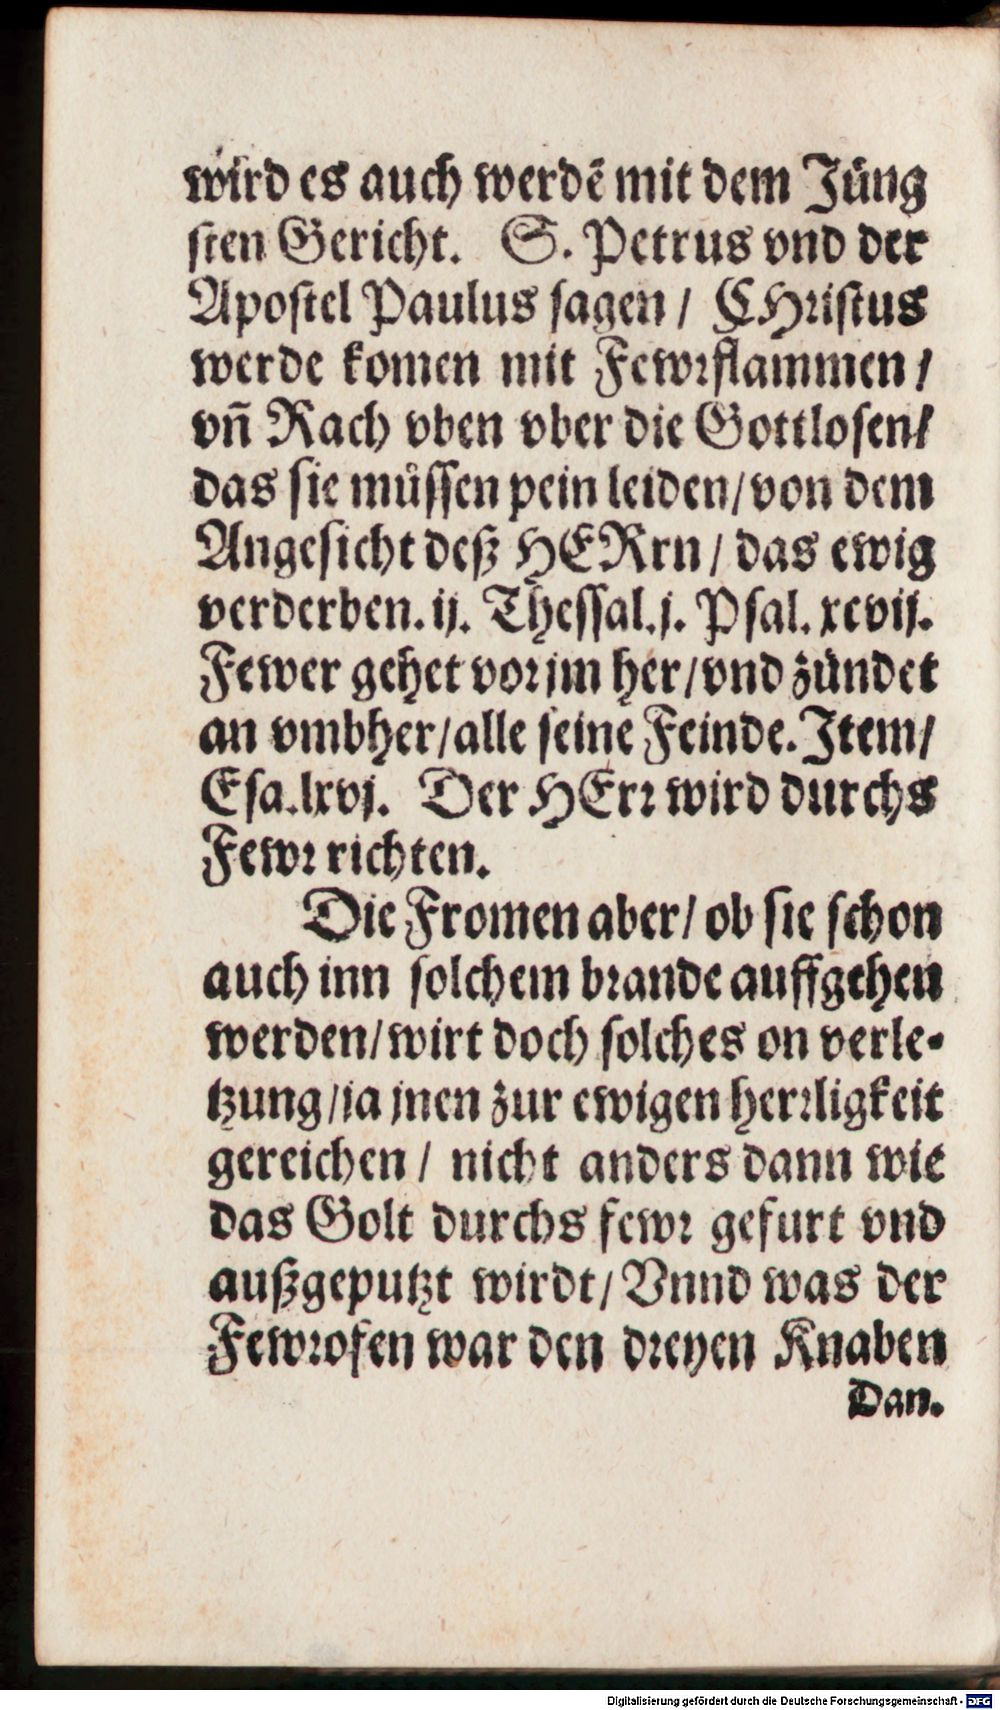 wird es auch werdẽ mit dem Jüng
sten Gericht. S. Petrus vnd der
Apostel Paulus sagen / CHristus
werde komen mit Fewrflammen /
vñ Rach vben vber die Gottlosen /
das sie müssen pein leiden / von dem
Angesicht deß HERrn / das ewig
verderben. ij. Thessal. j. Psal. xcvij.
Fewer gehet vor jm her / vnd zündet
an vmbher / alle seine Feinde. Item /
Esa. lxvj. Der HErr wird durchs
Fewr richten.
Die Fromen aber / ob sie schon
auch inn solchem brande auffgehen
werden / wirt doch solches on verle-
tzung / ja jnen zur ewigen herrligkeit
gereichen / nicht anders dann wie
das Golt durchs fewr gefurt vnd
außgeputzt wirdt / Vnnd was der
Fewrofen war den dreyen Knaben
Dan.
Digitalisierung gefördert durch die Deutsche Forschungsgemeinschaft - DFG